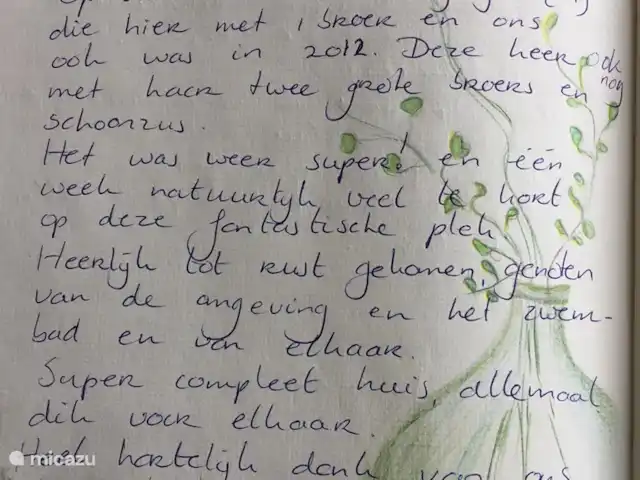 die hier met 1 broer en ons
ook was in 2012. Deze keer ook
nog
met haar twee grote broers en
schoonzus.
Het was weer super! en één
week natuurlijk veel te kort
op deze fantastische plek
Heerlijk tot rust gekomen, genoten
van de omgeving en het zwem-
bad en van elkaar.
Super compleet huis, allemaal
dik voor elkaar.
Heel hartelijk dank voor ons
micazu